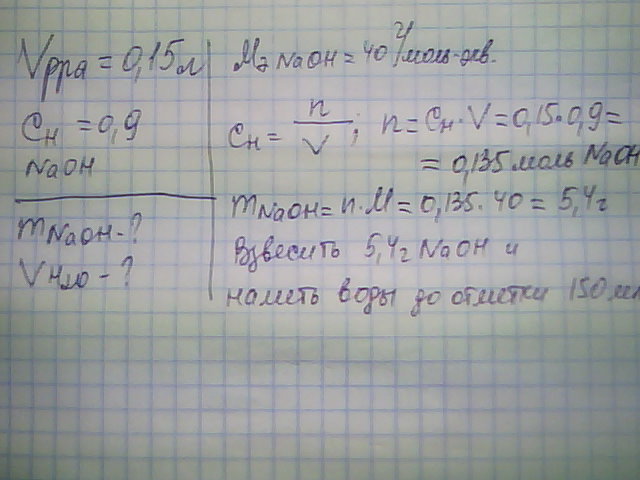 Vрра = 0,15л
Сн = 0,9
NaOH
mNaOH - ?
VH₂O - ?
Mэ NaOH = 40 г/моль-экв.
Сн = n/V; n = Cн · V = 0,15 · 0,9 =
= 0,135 моль NaOH
mNaOH = n · M = 0,135 · 40 = 5,4г
Взвесить 5,4г NaOH и
налить воды до отметки 150 мл